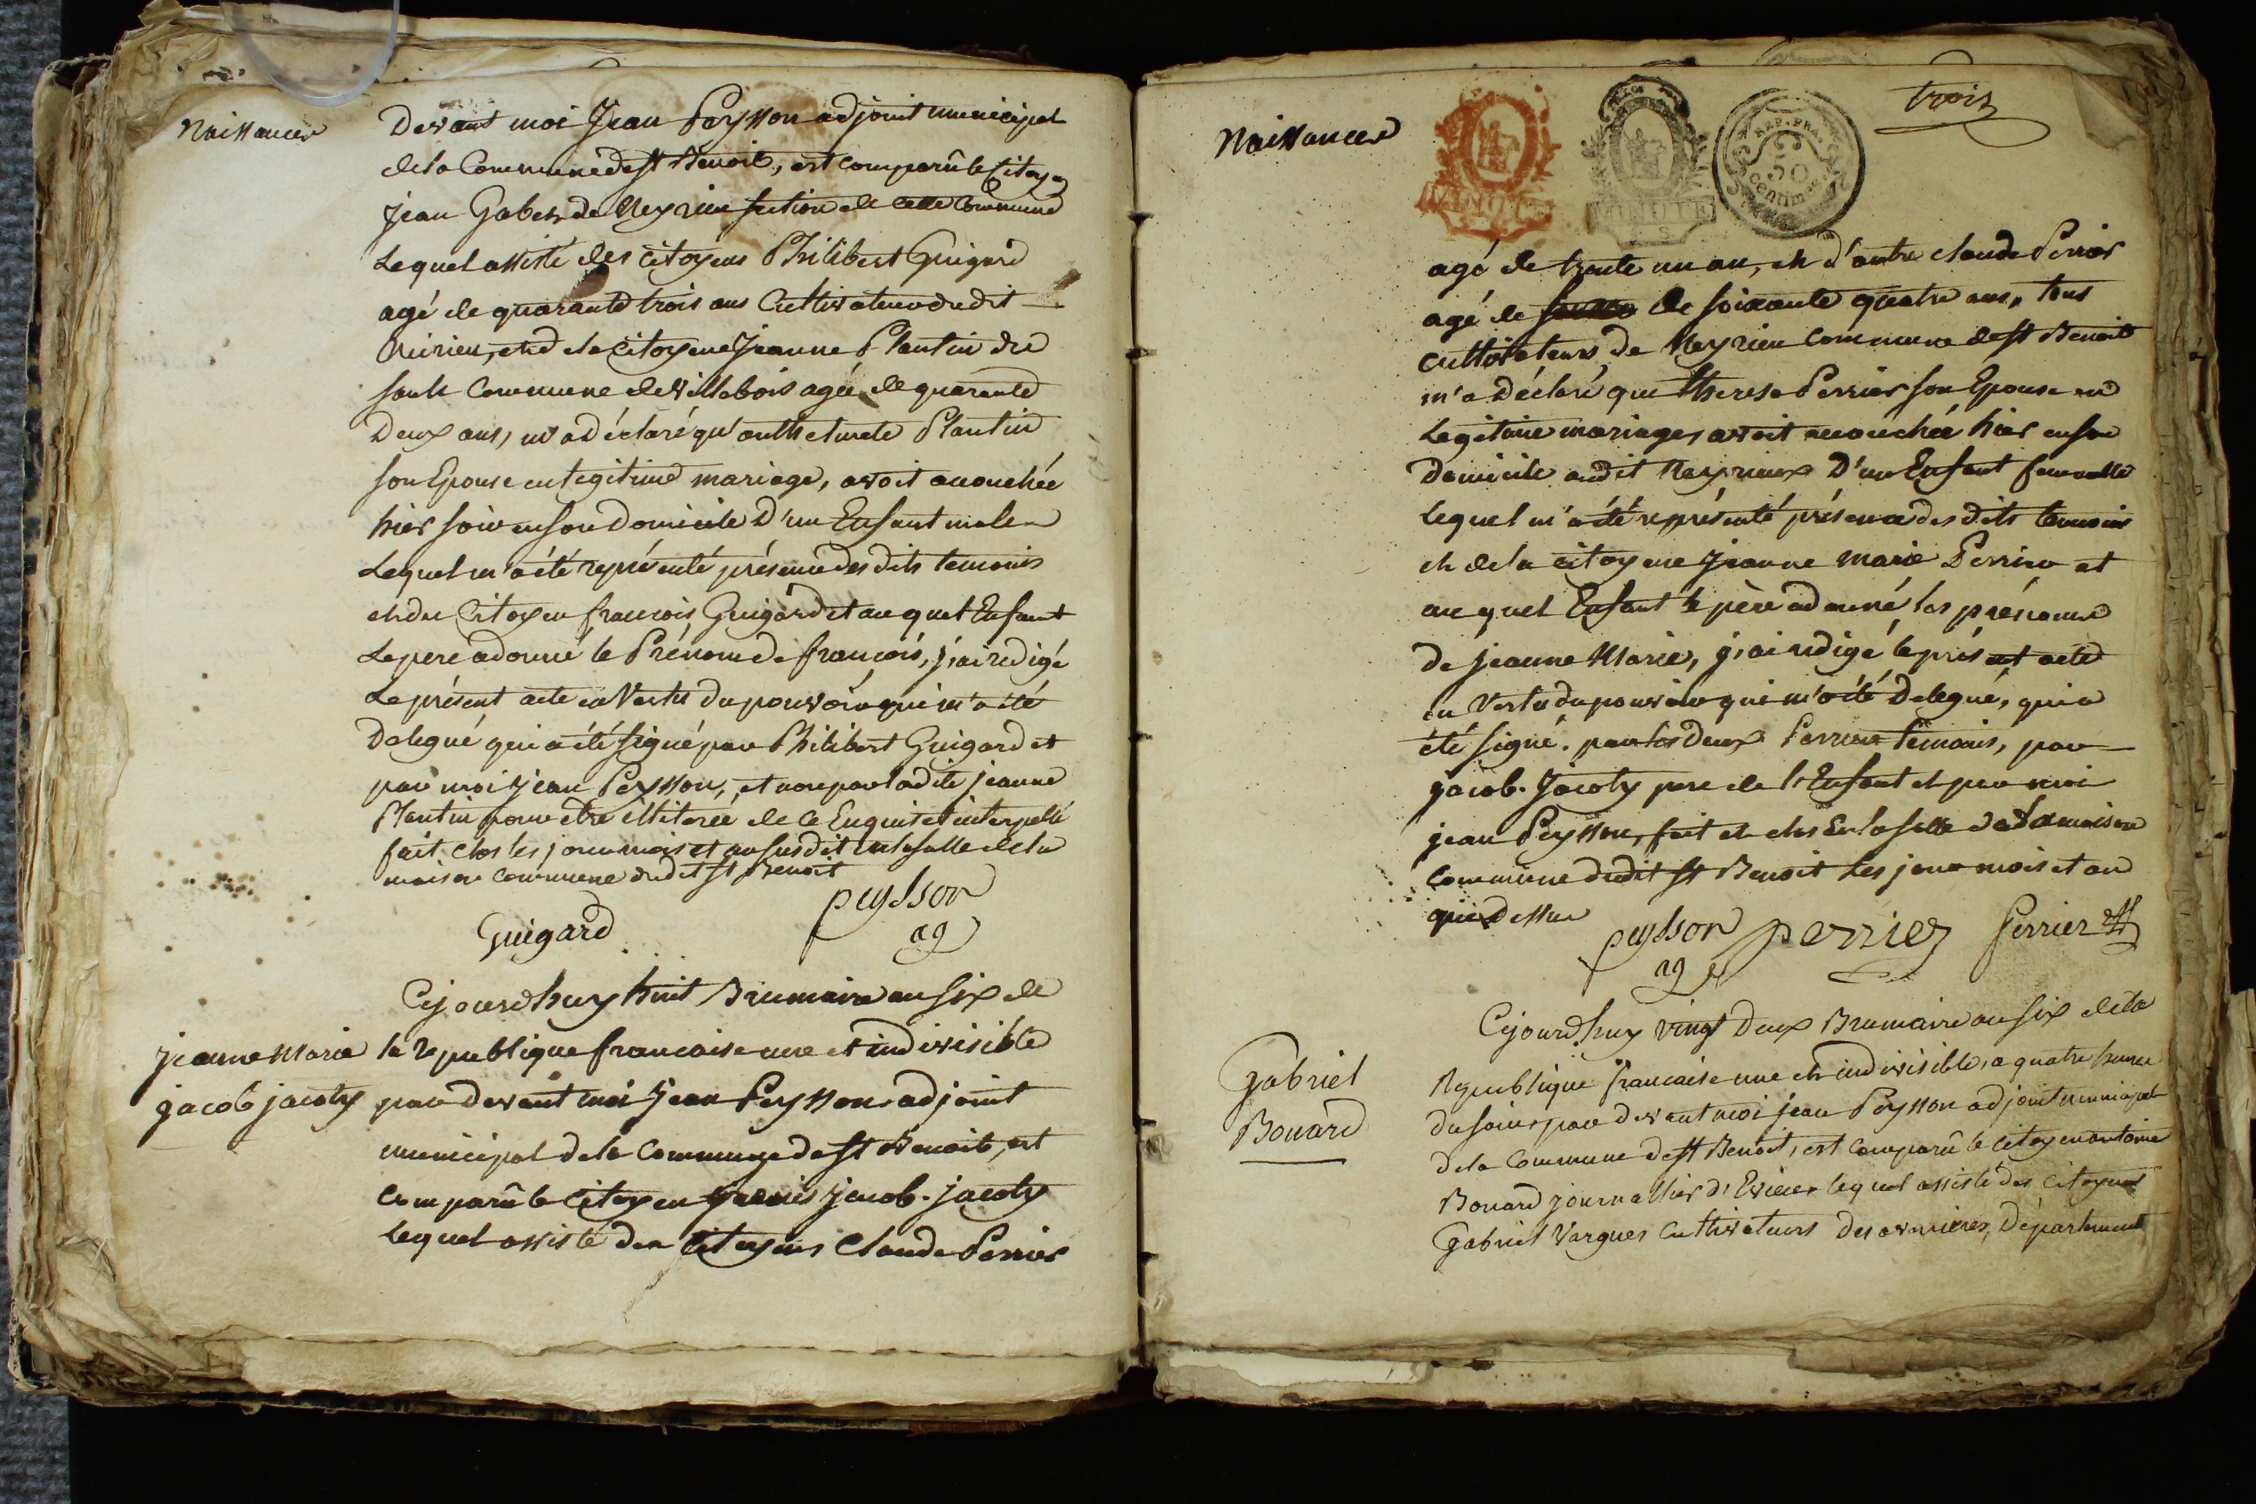 Naissances
Devant moi Jean Peysson adjoint municipal
de la Commune de st Benoit, est comparû le Citoyen
jean Gabet de Neyrieu section de cette Commune
Lequel assisté des citoyens Philibert Guigard
agé de quarante trois ans Cultivateur dudit
et de la citoyene Jeanne Plantin du
sault Commune de villebois agée de quarante
Deux ans, m'a déclaré qu'anthelmete Plantin
son Epouse en legitime mariage, avoit accouchée
hier soir en son Domicile D'un Enfant male
Lequel m'a été représenté présence des dits temoins
et du Citoyen francois Guigard et au quel Enfant
Le pere a donné le Prénom de francois, j'ai redigé
Le présent acte en Vertu du pouvoir qui m'a été
Delegué qui a été signé par Philibert Guigard et
par moi Jean Peysson, et non par ladite jeanne
Plantin pour etre illiterée de ce Enquise et interpellé
fait clos les jour mois et an susdit en la salle de la
maison commune dudit st Benoit
Guigard
peysson
ag
Cejourdhuy huit Brumaire an six de
jeanne Marie
jacob jacoty
la republique francaise une et indivisible
par devant moi Jean Peysson adjoint
municipal de la Commune de st Benoit, est
comparû le Citoyen jacob. jacoty
Lequel assisté des Citoyens Claude Perrier
Naissances
trois
REP. FRA.
50
centim.
agé de trente un an, et d'autre claude Perrier
agé de de soixante quatre ans, tous
cultivateurs de Neyrieu Commune de st Benoit
m'a Déclaré que therese Perrier son Epouse en
Legitime mariage, avoit accouchée hier en son
Domicile audit Neyrieux D'un Enfant femelle
Lequel m'a été représenté présence des dits temoins
et de la citoyene Jeanne Marie Perrier et
au quel Enfant le père a donné les prénoms
de jeanne Marie, j'ai redigé le présent acte
en Vertu du pouvoir qui m'a été Delegué, qui a
été signé. par les Deux Perrier temoins, par
jacob. Jacoty pere de l'Enfant et par moi
jean Peysson, fait et clos En la salle de la maison
Commune dudit st Benoit Les jour mois et an
que dessus
peysson
ag
perrier
Perrier
Cejourdhuy vingt Deux Brumaire an six de la
Gabriel
Bouard
Republique francaise une et indivisible, a quatre heures
du soir, par devant moi jean Peysson adjoint municipal
de la Commune de st Benoit, est comparû le citoyen antoine
Bouard journallier d'Evieu, lequel assisté des Citoyens
Gabriel Vargues Cultivateurs des avenieres, Département